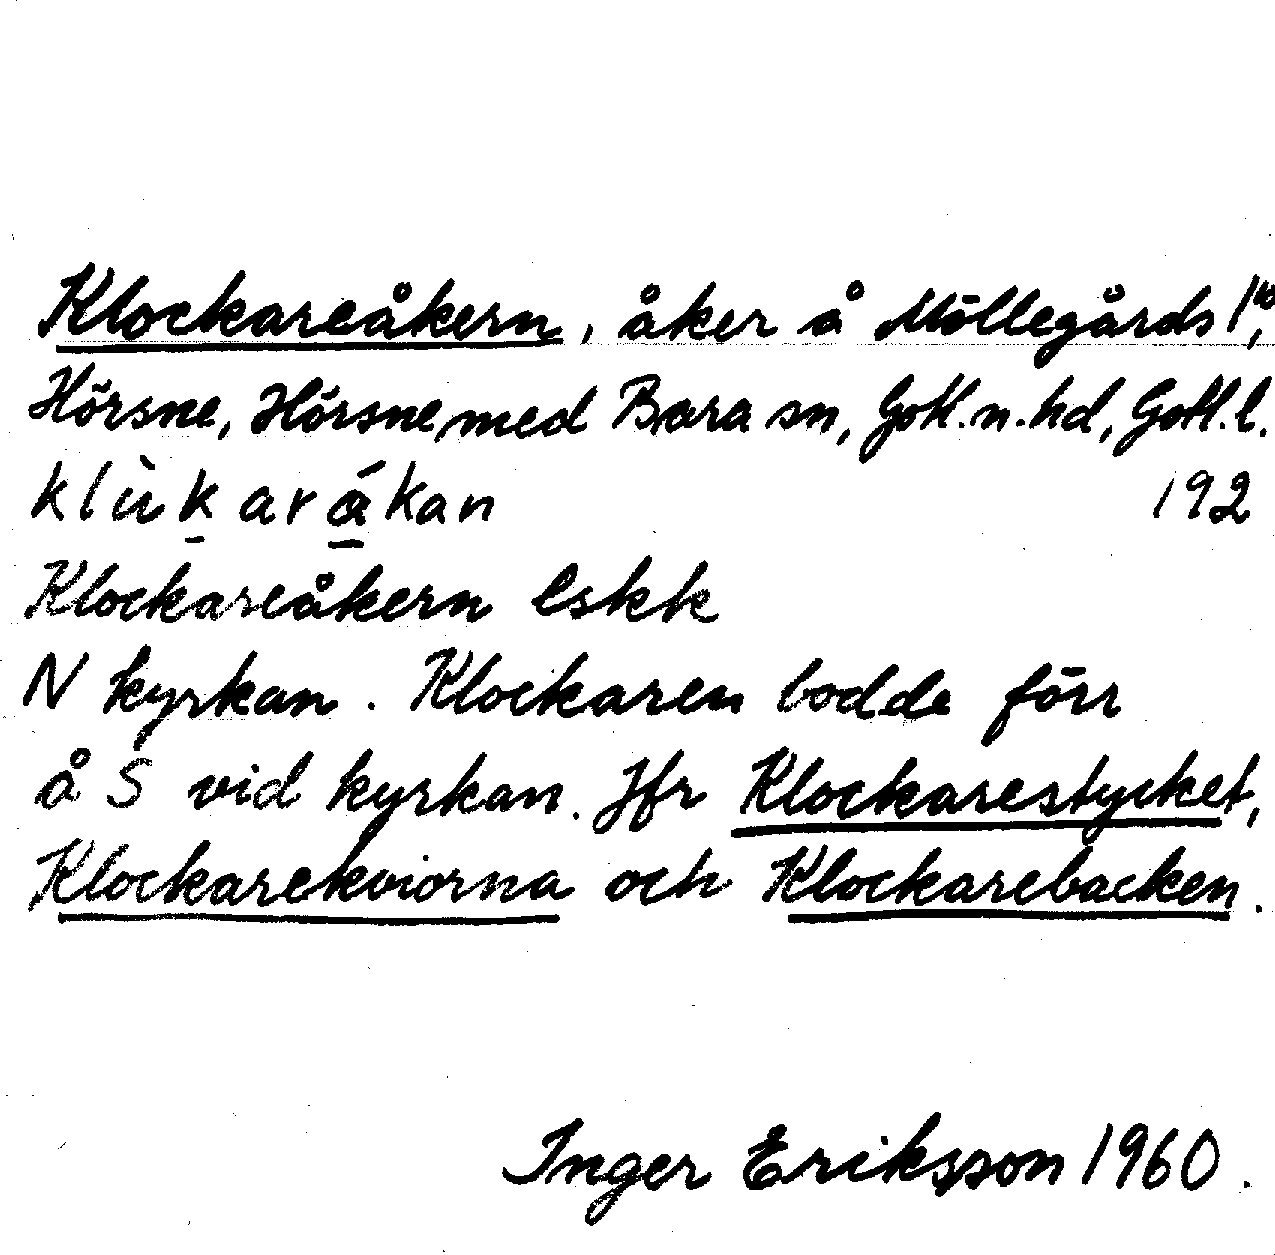 Klockareåkern, åker å Möllegårds 1ᵚ,
Hörsne, Hörsne med Bara sn, Gotl. n. hd, Gotl. l.
klùk̠ará̠kan 192
Klockareåkern Eskk
N kyrkan. Klockaren bodde förr
å S vid kyrkan. Jfr Klockarestycket,
Klockarekviorna och Klockarebacken.
Inger Eriksson 1960.